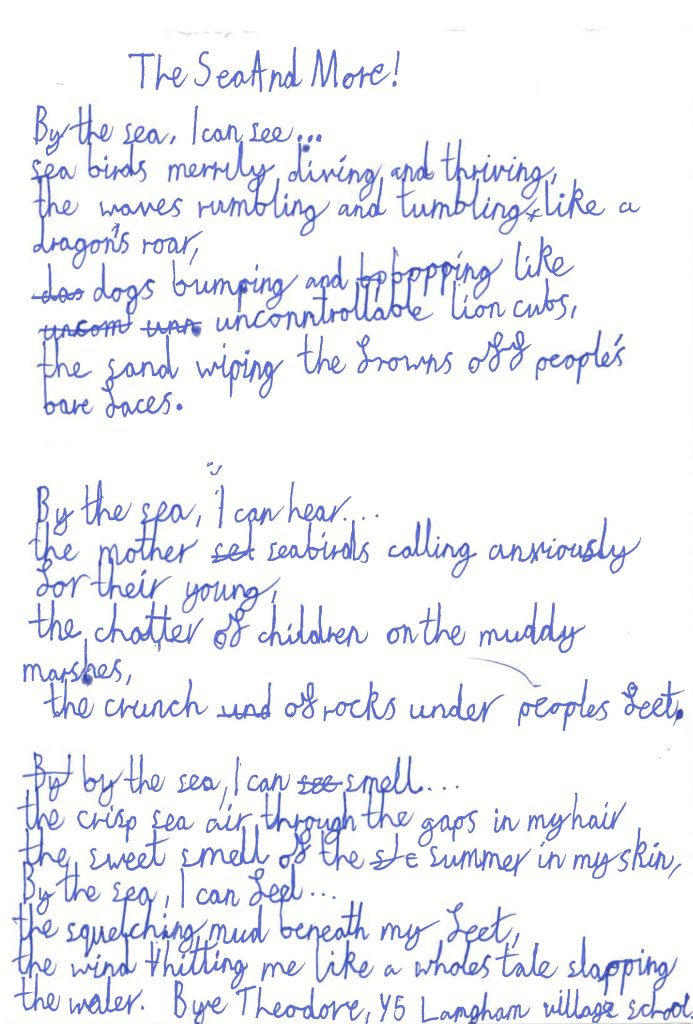 The Sea And More!
By the sea, I can see...
sea birds merrily diving and thriving,
the waves rumbling and tumbling, like a
dragon's roar,
das dogs bumping and bpbopping like
uncom unn unconntrollable lion cubs,
the sand wiping the frowns off people's
bare faces.
By the sea, I can hear...
the mother set seabirds calling anxiously
for their young,
the chatter of children on the muddy
marshes,
the crunch und of rocks under peoples feet.
By by the sea, I can see smell...
the crisp sea air through the gaps in my hair
the sweet smell of the summer in my skin,
By the sea, I can feel...
the squelching mud beneath my feet,
the wind hitting me like a whales tale slapping
the water. Bye Theodore, Y5 Langham village school.